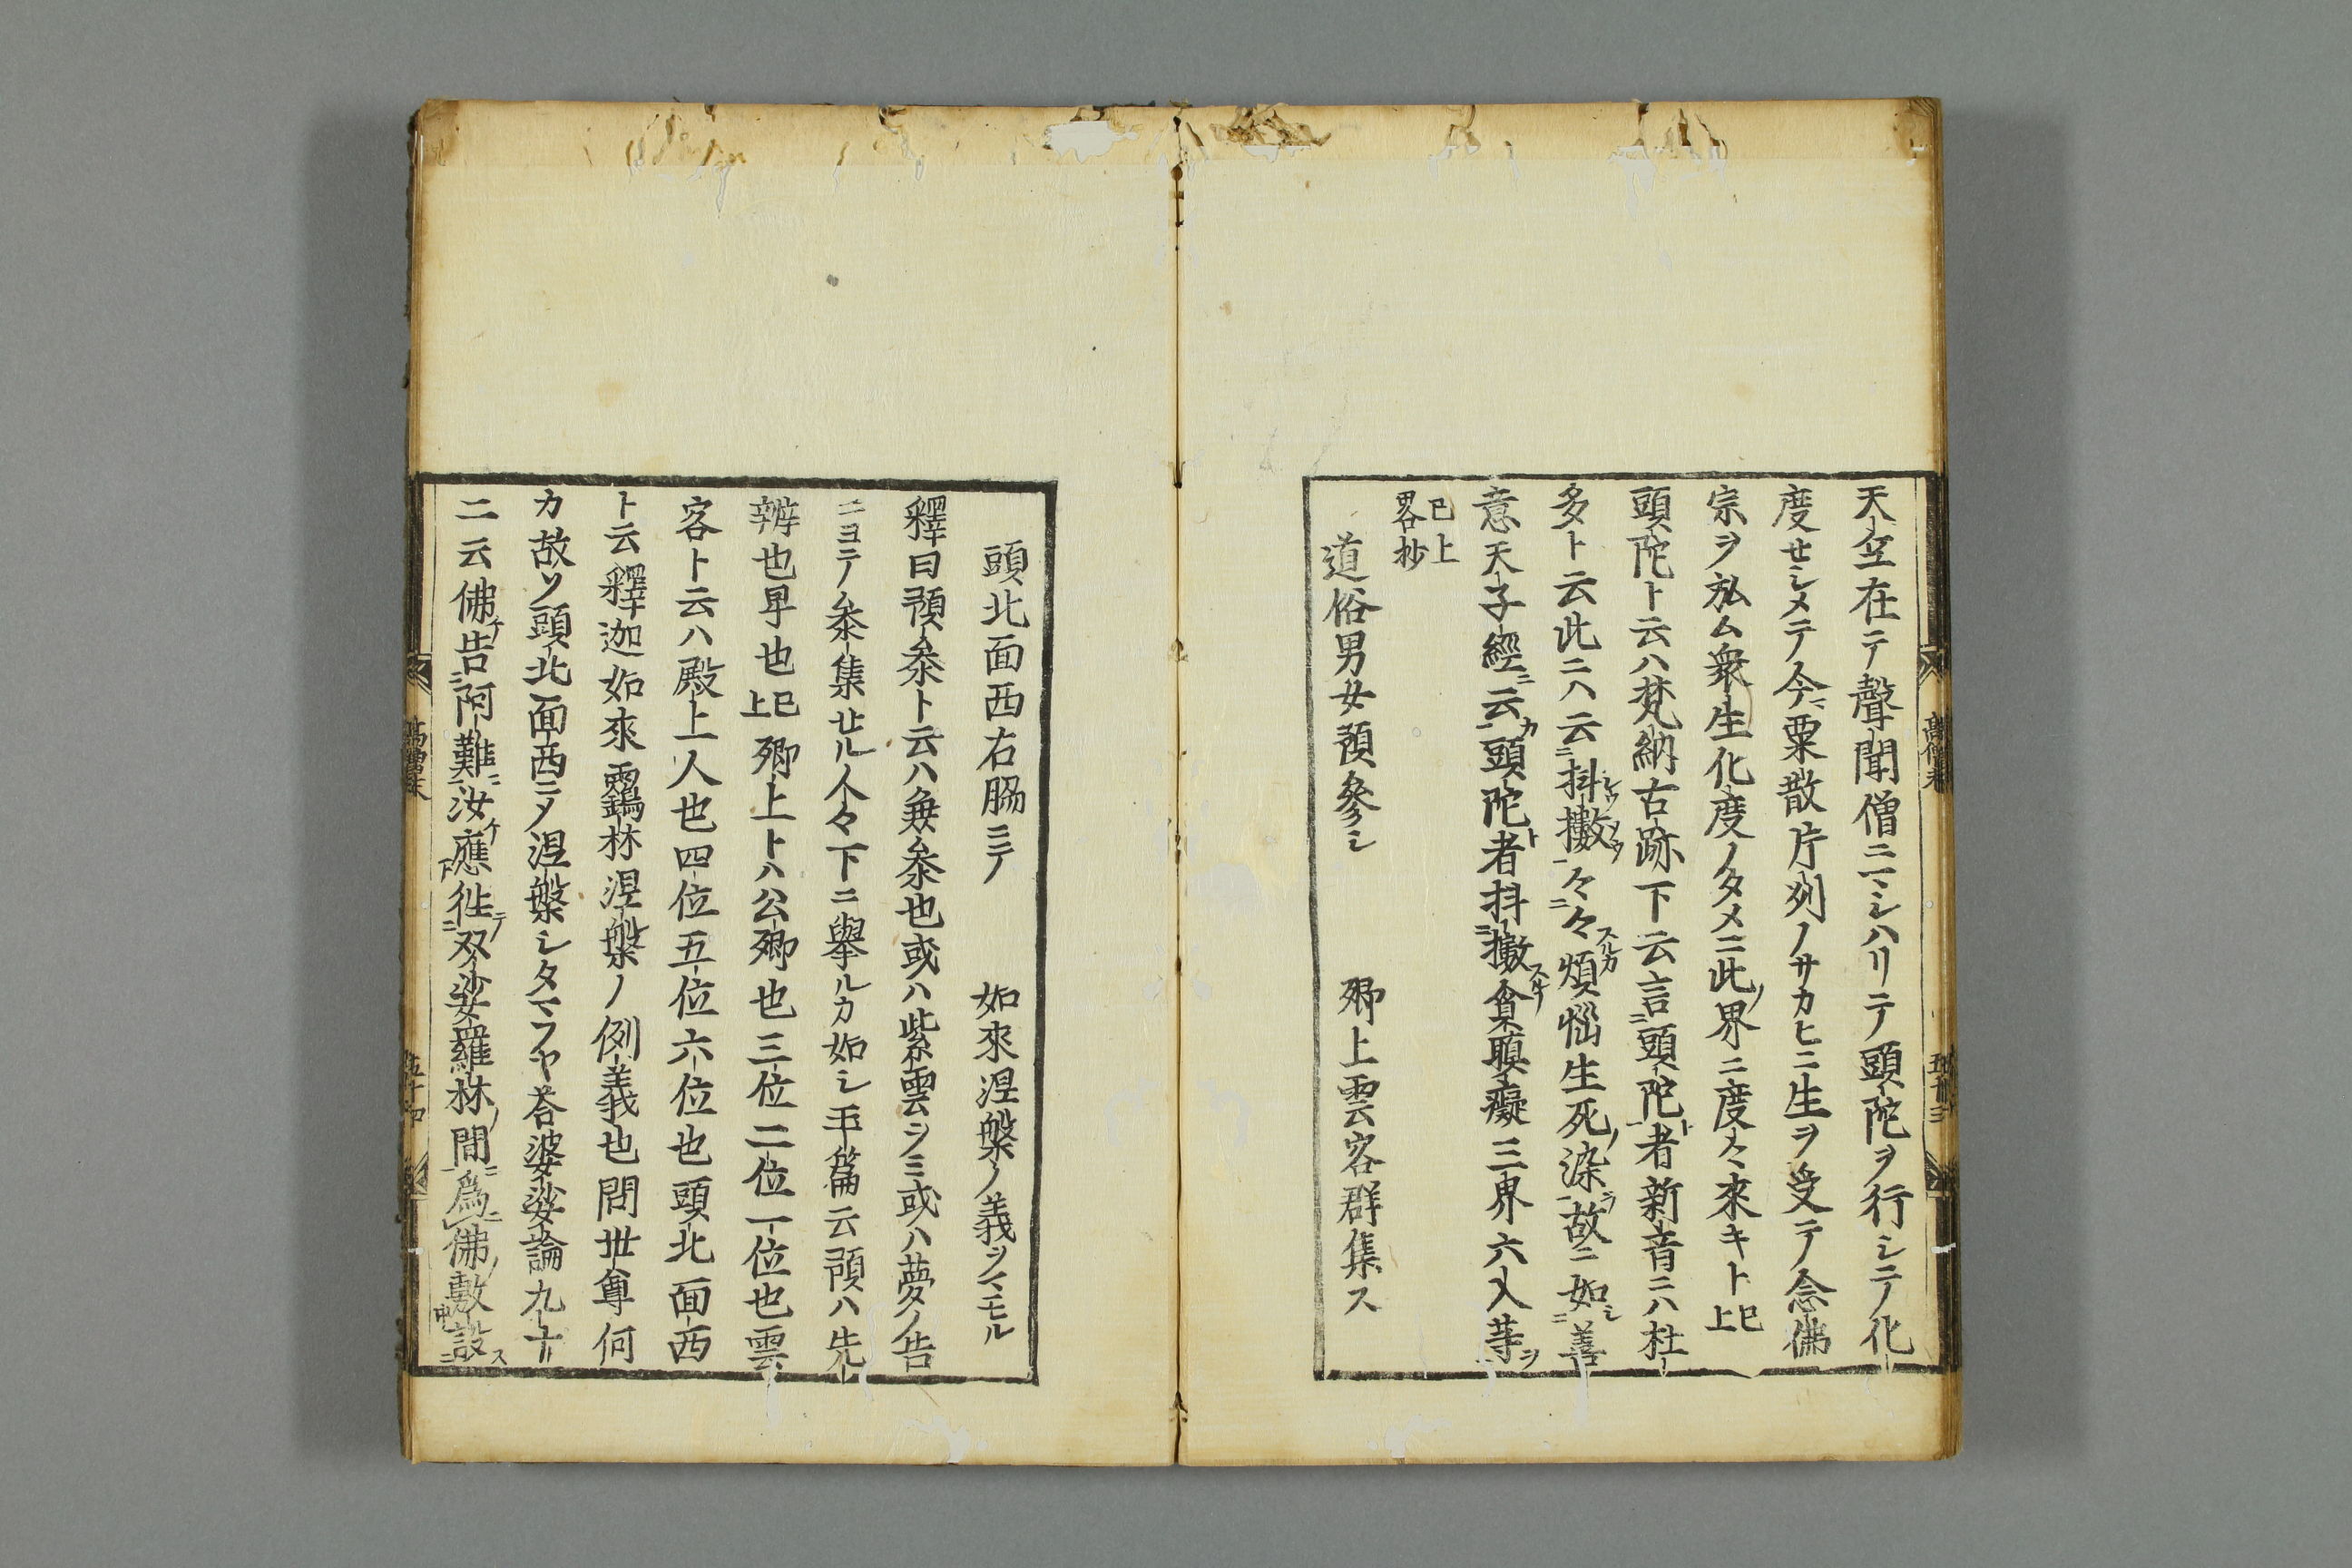 天竺在テ聲聞僧ニマシハリテ頭陀ヲ行シテ化
度せシメテ今粟散片列ノサカヒニ生ヲ受テ念佛
宗ヲ弘ム衆生化度ノタメニ此界ニ度々來キト已上
頭陀ト云ハ梵納古跡下云言頭陀者新音ニハ杜
多ト云此ニハ云抖擻々々煩惱生死染故ニ如善
意天子經云頭陀者抖擻貪瞋癡三界六入等ヲ
已上畧抄
道俗男女預參シ 卿上雲客群集ス
頭北面西右脇ニテ 如來涅槃ノ義ヲマモル
釋曰預叅ト云ハ兼叅也或ハ紫雲ヲミ或ハ夢ノ告
ニヨテノ叅集せル人々下ニ擧ルカ如シ玉篇云預ハ先
辨也早也已上卿上トハ公卿也三位二位一位也雲
客ト云ハ殿上人也四位五位六位也頭北面西
ト云釋迦如來靏林涅槃ノ例義也問世尊何
カ故ソ頭北面西ニメ涅槃シタマフヤ荅婆娑論九十
二云佛告阿難汝應徃双娑羅林間爲佛敷設